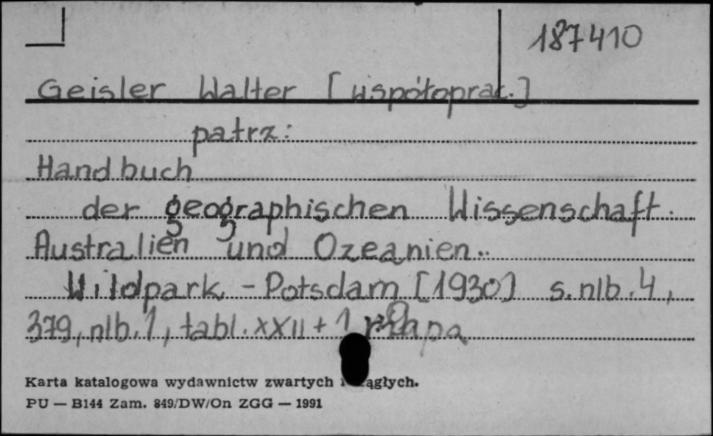 187410
Geisler Walter [współoprac.]
patrz:
Handbuch
der geographischen Wissenschaft.
Australien und Ozeanien..
Wildpark - Potsdam [1930] s. nlb. 4,
379, nlb. 1, tabl. XXII + 1 mapa
Karta katalogowa wydawnictw zwartych i ciągłych.
PU — B144 Zam. 849/DW/On ZGG — 1991